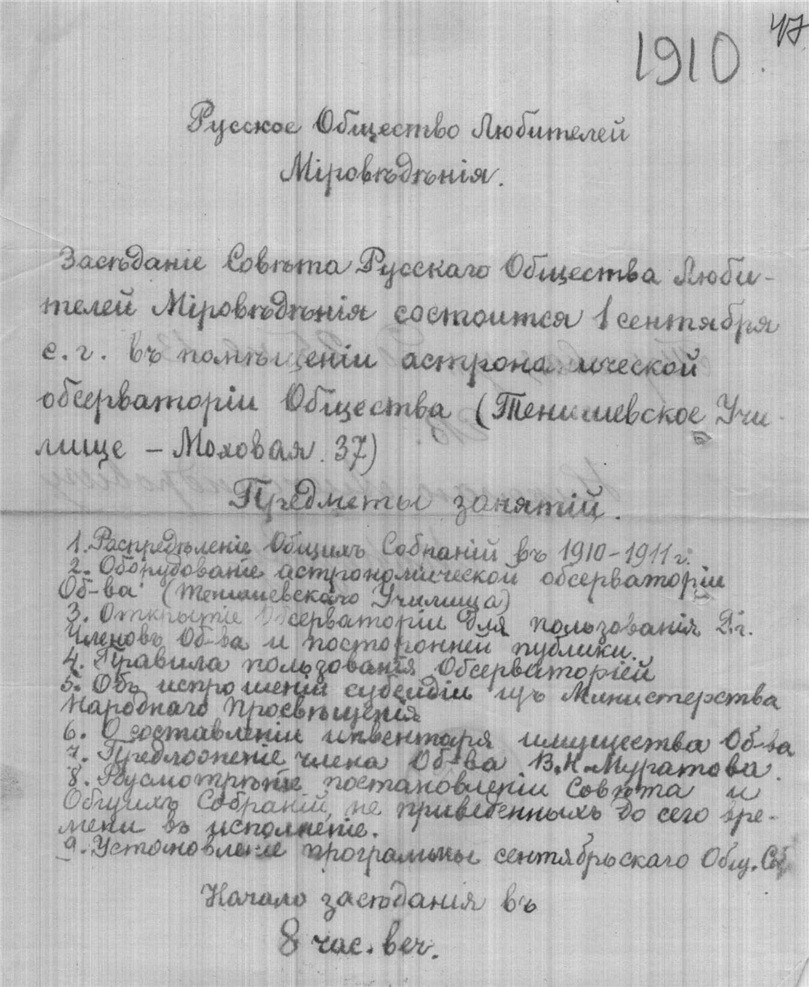 47
1910.
Русское Общество Любителей
Міровѣдѣнія.
Засѣданіе Совѣта Русскаго Общества Люби-
телей Міровѣдѣнія состоится 1 сентября
с. г. въ помѣщеніи астрономической
обсерваторіи Общества (Тенишевское Учи-
лище – Моховая 37)
Предметы занятій.
1. Распредѣленіе Общихъ Собраній въ 1910-1911 г.
2. Оборудованіе астрономической обсерваторіи
Об-ва (Тенишевскаго Училища)
3. Открытіе Обсерваторіи для пользованія г.г.
Членовъ Об-ва и посторонней публики.
4. Правила пользованія Обсерваторіей
5. Объ испрошеніи субсидіи изъ Министерства
Народнаго Просвѣщенія
6. О составленіи инвентаря имущества Об-ва
7. Предложеніе члена Об-ва В.Н. Муратова.
8. Разсмотрѣніе постановленій Совѣта и
Общихъ Собраній, не приведенныхъ до сего вре-
мени въ исполненіе.
9. Установленіе программы сентябрьскаго Общ. Соб.
Начало засѣданія въ
8 час. веч.